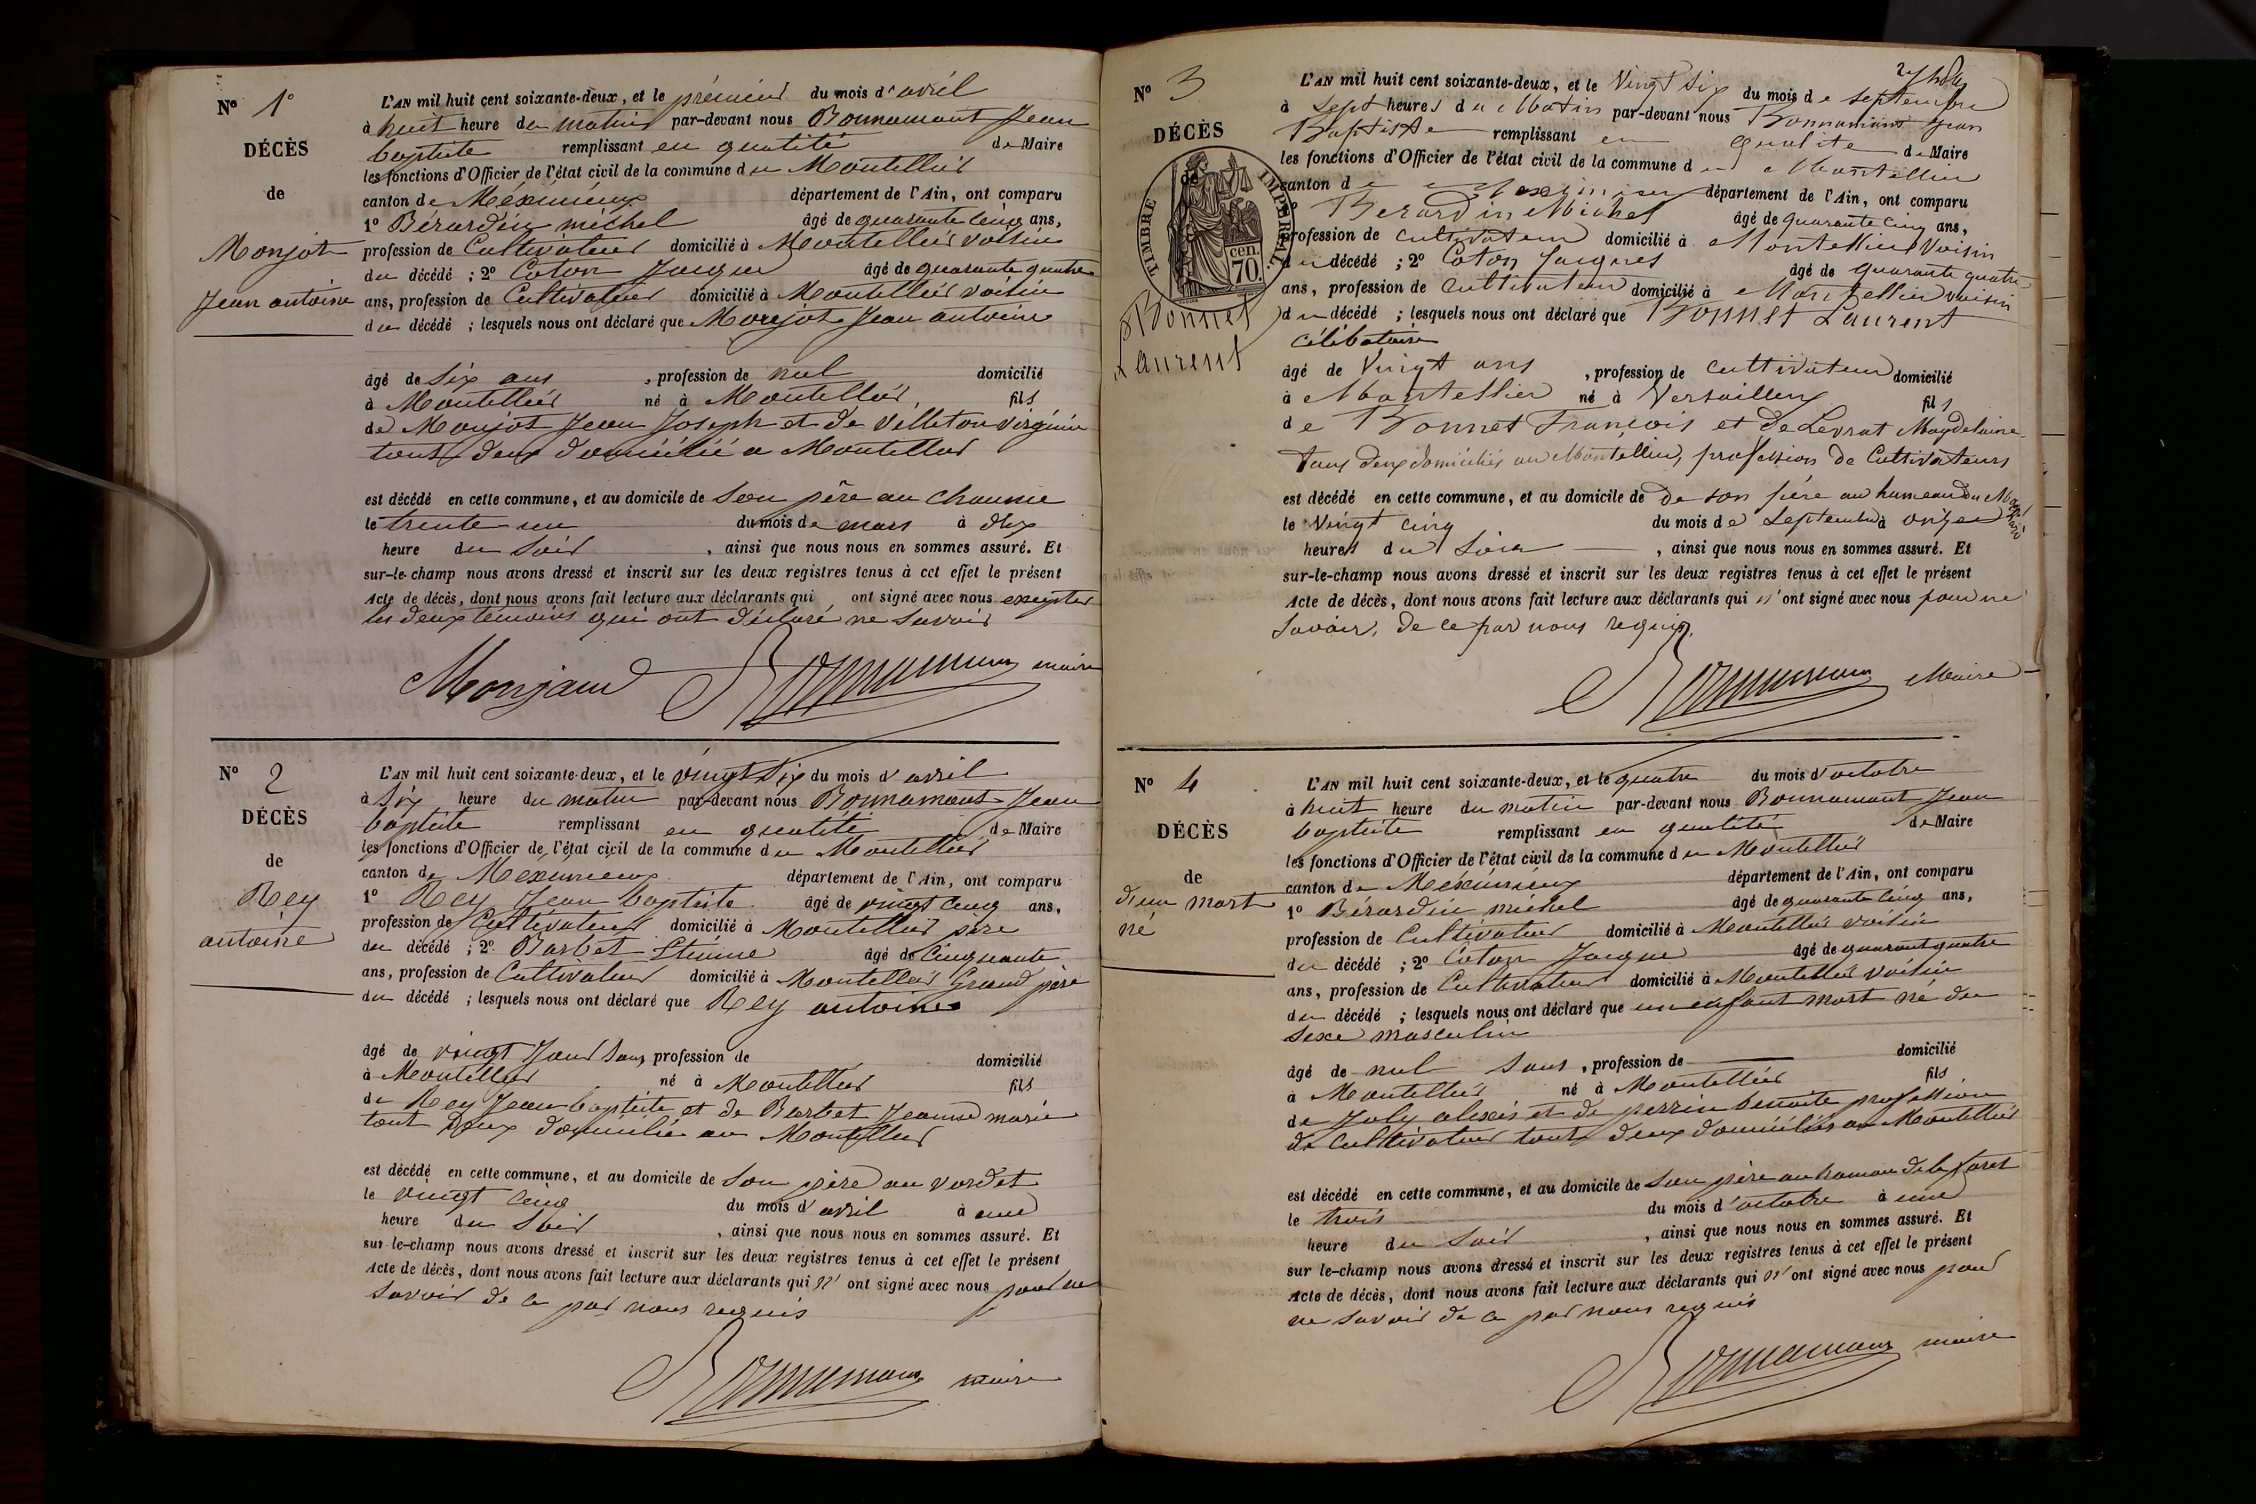 No 1o
DÉCÈS
de
Monjot
Jean antoine
L'AN mil huit cent soixante-deux, et le prémier du mois d'avril
à huit heure du matin par-devant nous Bonnamant Jean
baptiste remplissant en qualité de Maire
les fonctions d'Officier de l'état civil de la commune du Montellier
canton de Méximieux département de l'Ain, ont comparu
1o Bérardin michel âgé de quarante cinq ans,
profession de Cultivateur domicilié à Montellier voisin
du décédé ; 2o Coton Jacque âgé de quarante quatre
ans, profession de Cultivateur domicilié à Montellier voisin
du décédé ; lesquels nous ont déclaré que Monjot Jean antoine
âgé de six ans , profession de nul domicilié
à Montellier né à Montellier, fils
de Monjot Jean Joseph et de Villeton virginie
tout deux domicilié a Montellier
est décédé en cette commune, et au domicile de son père au Chaume
le trente un du mois de mars à dix
heure du soir , ainsi que nous nous en sommes assuré. Et
sur-le-champ nous avons dressé et inscrit sur les deux registres tenus à cet effet le présent
Acte de décès, dont nous avons fait lecture aux déclarants qui ont signé avec nous excepter
les deux témoins qui ont déclaré ne savoir
Monjaud Bonnamant maire
No 2
DÉCÈS
de
Rey
antoine
L'AN mil huit cent soixante-deux, et le vingt six du mois d'avril
à six heure du matin par-devant nous Bonnamant Jean
baptiste remplissant en qualité de Maire
les fonctions d'Officier de l'état civil de la commune du Montellier
canton de Meximieux département de l'Ain, ont comparu
1o Rey Jean baptiste âgé de vingt cinq ans,
profession de Cultivateur domicilié à Montellier père
du décédé ; 2o Barbet Etienne âgé de Cinquante
ans, profession de Cultivateur domicilié à Montellier Grand père
du décédé ; lesquels nous ont déclaré que Rey antoine
âgé de vingt Jour sans profession de domicilié
à Montellier né à Montellier fils
de Rey Jean baptiste et de Barbet Jeanne marie
tout Deux domicilié au Montellier
est décédé en cette commune, et au domicile de son père au verdet
le vingt cinq du mois d'avril à une
heure du soir , ainsi que nous nous en sommes assuré. Et
sur-le-champ nous avons dressé et inscrit sur les deux registres tenus à cet effet le présent
Acte de décès, dont nous avons fait lecture aux déclarants qui n'ont signé avec nous pour ne
savoir de ce par nous requis
Bonnamant maire
No 3
DÉCÈS
de
TIMBRE IMPÉRIAL
70 cen.
Bonnet
Laurent
L'AN mil huit cent soixante-deux, et le Vingt Six du mois de septembre
à sept heures du Matin par-devant nous Bonnamant Jean
Baptiste remplissant en qualité de Maire
les fonctions d'Officier de l'état civil de la commune du Montellier
canton de Meximieux département de l'Ain, ont comparu
1o Berardin Michel âgé de quarante cinq ans,
profession de cultivateur domicilié à Montellier Voisin
du décédé ; 2o Coton Jacques âgé de quarante quatre
ans, profession de cultivateur domicilié à Montellier voisin
du décédé ; lesquels nous ont déclaré que Bonnet Laurent
célibataire
âgé de Vingt ans , profession de cultivateur domicilié
à Montellier né à Versailleux fils
de Bonnet François et de Levrat Magdelaine
tous deux domiciliés au Montellier, profession de Cultivateurs
est décédé en cette commune, et au domicile de de son père au hameau du
le Vingt cinq du mois de Septembre à onze
heures du Soir , ainsi que nous nous en sommes assuré. Et
sur-le-champ nous avons dressé et inscrit sur les deux registres tenus à cet effet le présent
Acte de décès, dont nous avons fait lecture aux déclarants qui n'ont signé avec nous pour ne
savoir, de ce par nous requis,
Bonnamant Maire
No 4
DÉCÈS
de
d'un mort
né
L'AN mil huit cent soixante-deux, et le quatre du mois d'octobre
à huit heure du matin par-devant nous Bonnamant Jean
baptiste remplissant en qualité de Maire
les fonctions d'Officier de l'état civil de la commune du Montellier
canton de Méximieux département de l'Ain, ont comparu
1o Bérardin michel âgé de quarante cinq ans,
profession de Cultivateur domicilié à Montellier voisin
du décédé ; 2o Coton Jacque âgé de quarant quatre
ans, profession de Cultivateur domicilié à Montellier voisin
du décédé ; lesquels nous ont déclaré que un enfant mort né du
sexe masculin
âgé de nul sans , profession de domicilié
à Montellier né à Montellier fils
de Joly alexis et de perrin benoite profession
de Cultivateur tout deux domiciliés au Montellier
est décédé en cette commune, et au domicile de son père au hamau de la foret
le trois du mois d'octobre à une
heure du soir , ainsi que nous nous en sommes assuré. Et
sur le-champ nous avons dressé et inscrit sur les deux registres tenus à cet effet le présent
Acte de décès, dont nous avons fait lecture aux déclarants qui n'ont signé avec nous pour
ne savoir de ce par nous requis
Bonnamant maire